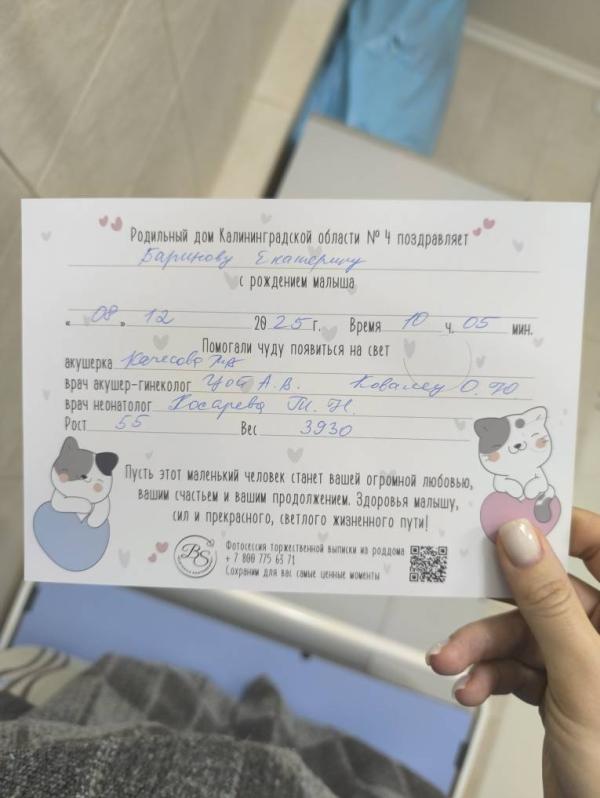 Родильный дом Калининградской области № 4 поздравляет
Баринову Екатерину
с рождением малыша
« 08 » 12 2025 г. Время 10 ч. 05 мин.
Помогали чуду появиться на свет
акушерка
врач акушер-гинеколог Цой А.В. Ковалец О.Ю
врач неонатолог Косарева Т.Н.
Рост 55 Вес 3930
Пусть этот маленький человек станет вашей огромной любовью,
вашим счастьем и вашим продолжением. Здоровья малышу,
сил и прекрасного, светлого жизненного пути!
BS
Фотосессия торжественной выписки из роддома
+ 7 800 775 63 71
Сохраним для вас самые ценные моменты